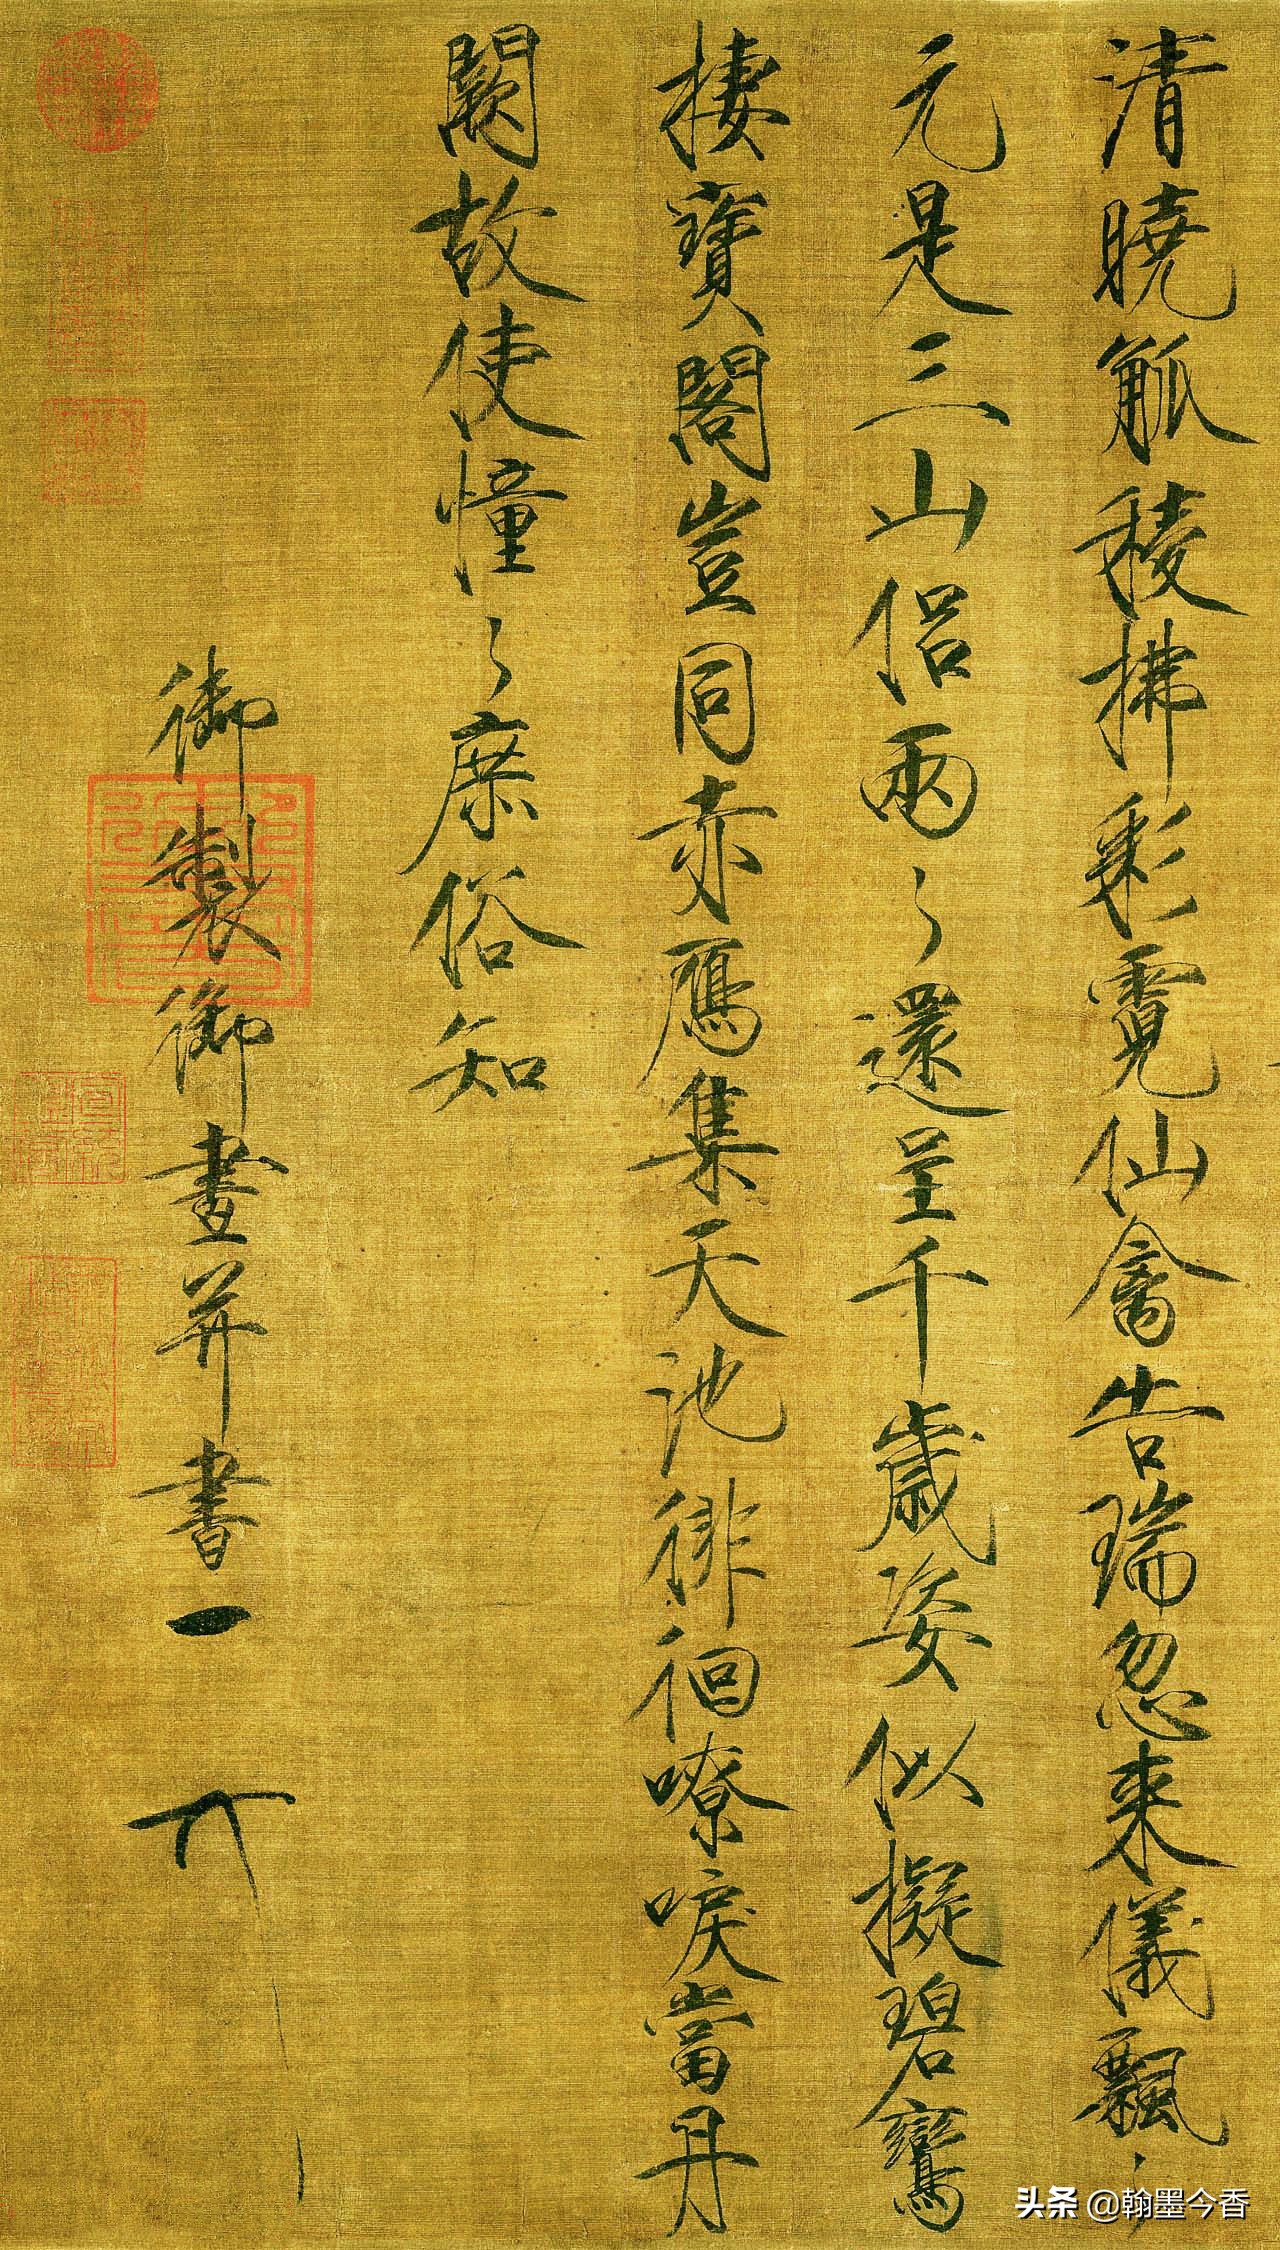 清曉觚稜拂彩霓仙禽告瑞忽来儀飄〻
元是三山侣兩〻還呈千歲姿似擬碧鸞
棲寶閣豈同赤鴈集天池徘徊嘹唳當丹
闕故使憧〻庶俗知
御製御畫并書
頭条 @翰墨今香